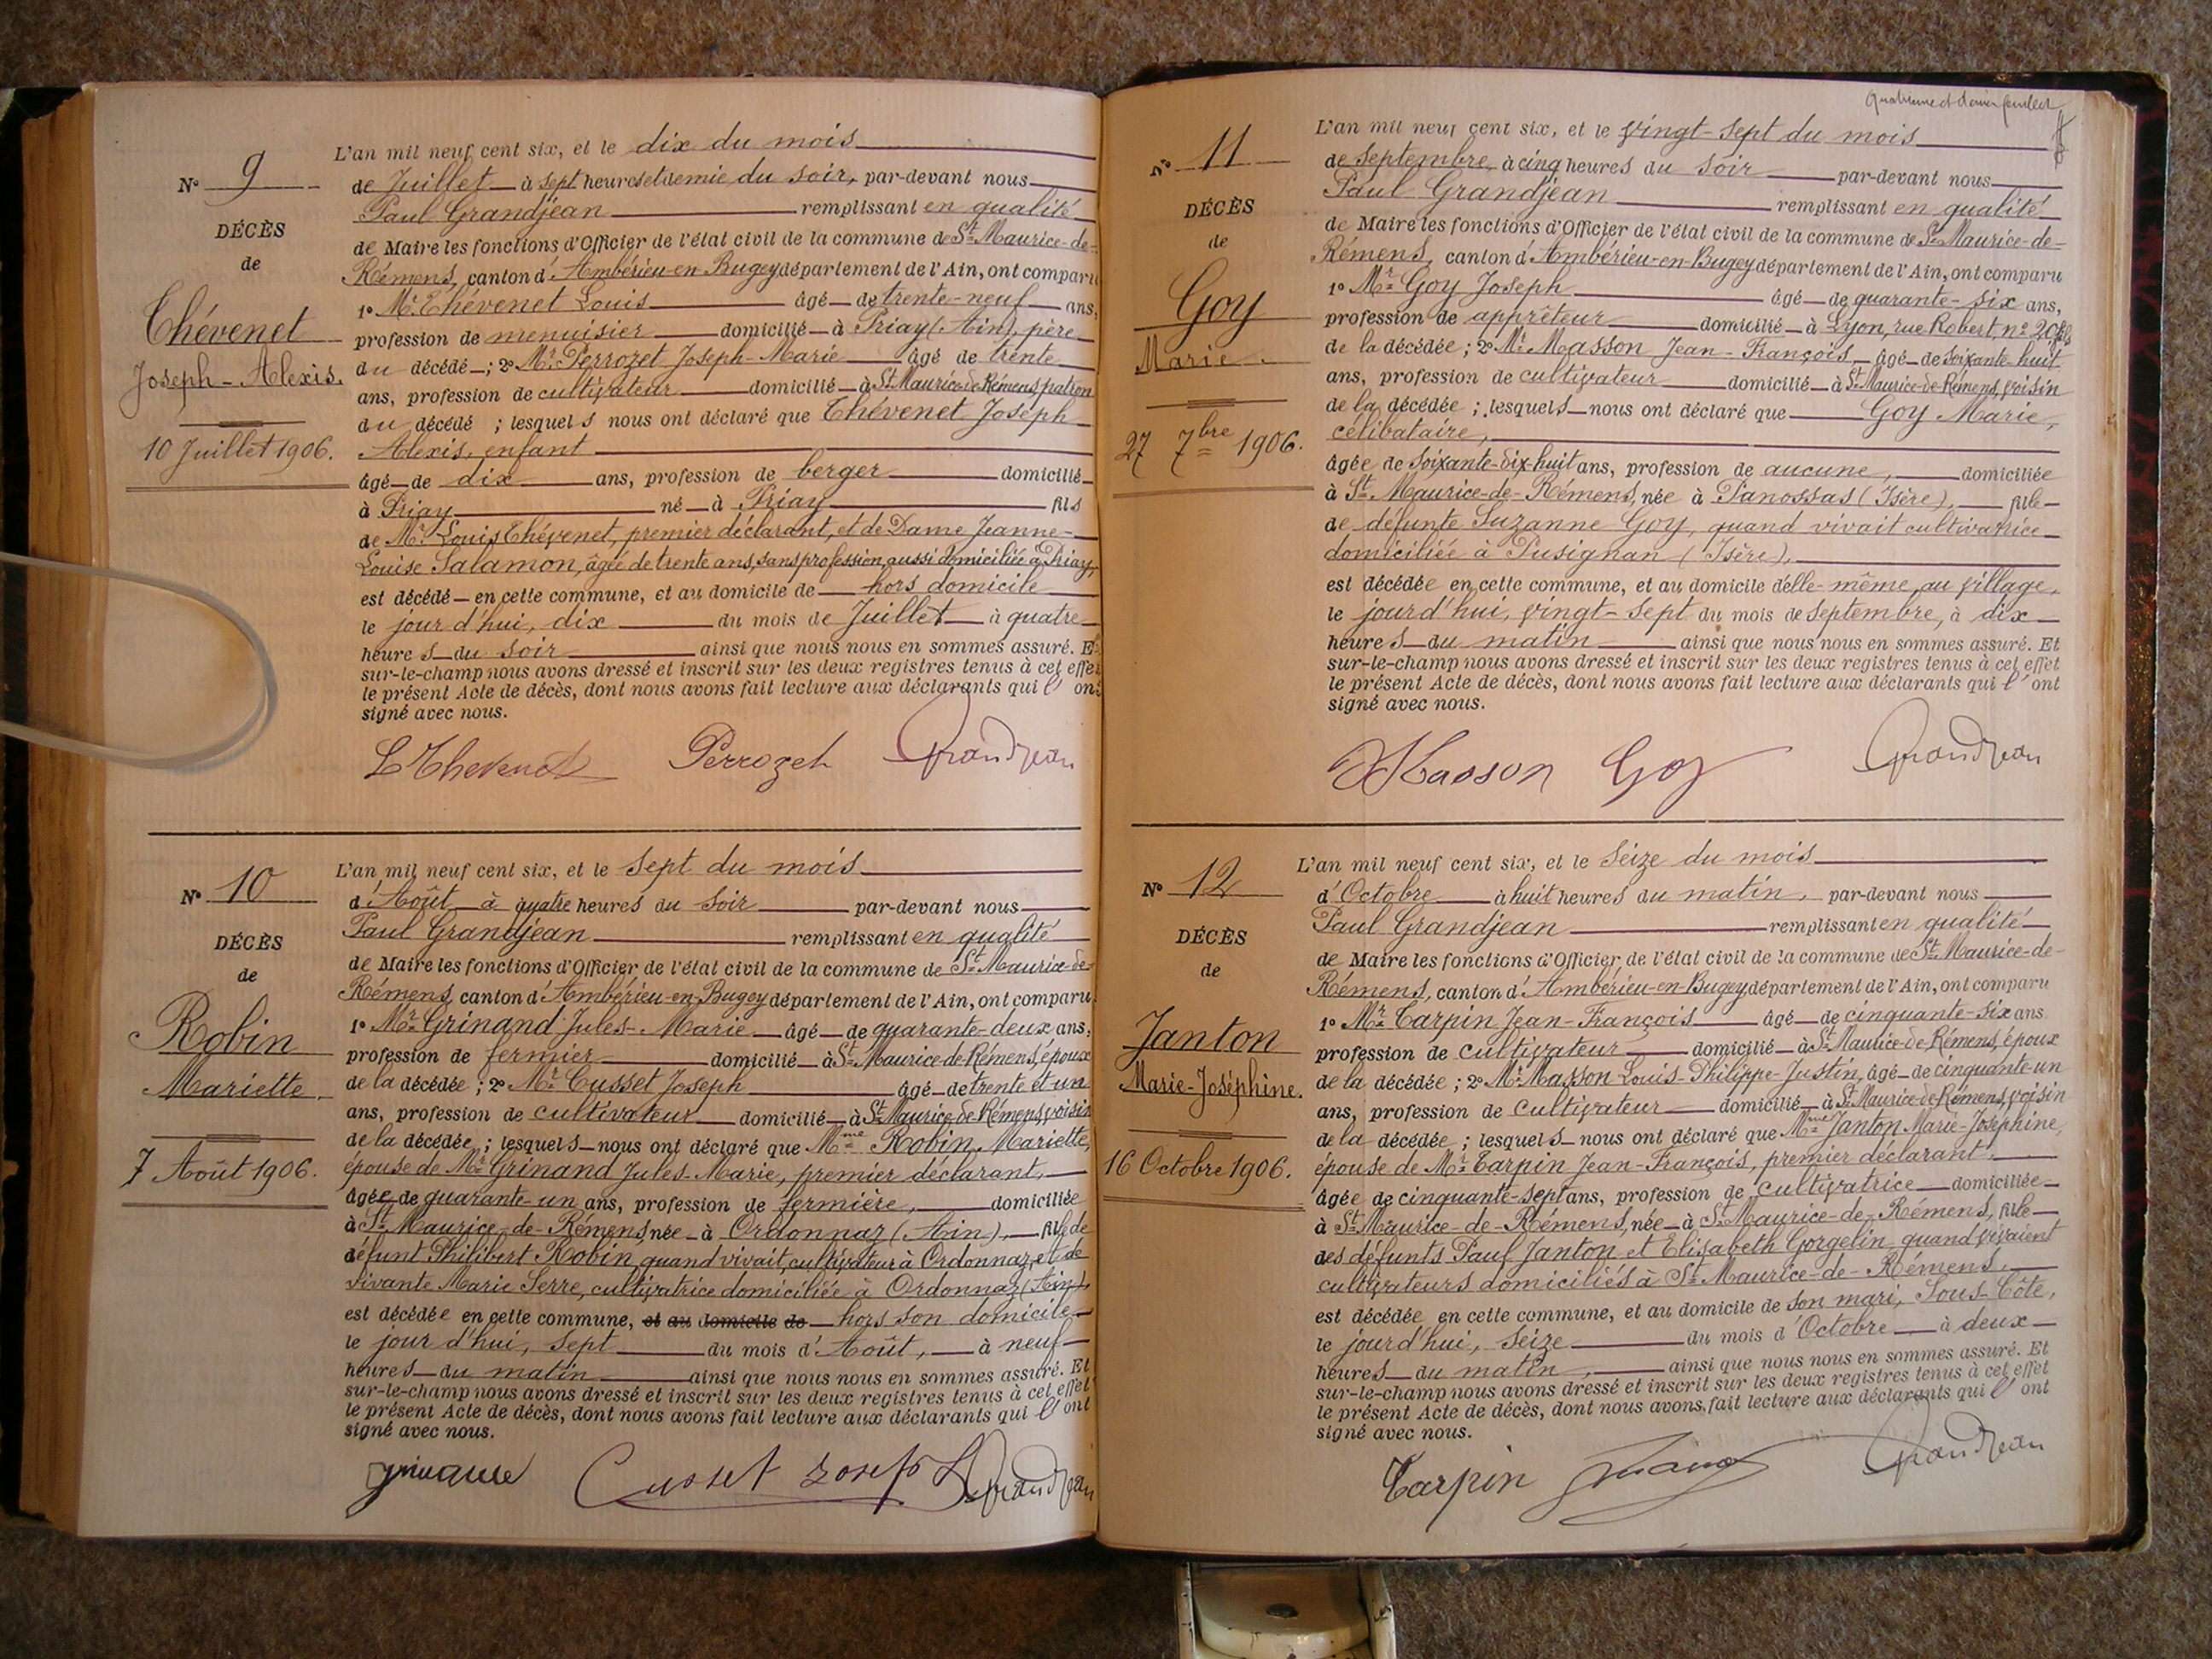 N° 9
DÉCÈS
de
Thévenet
Joseph-Alexis.
10 Juillet 1906.
L'an mil neuf cent six, et le dix du mois
de Juillet à sept heures et demie du soir, par-devant nous
Paul Grandjean remplissant en qualité
de Maire les fonctions d'Officier de l'état civil de la commune de St Maurice-de-
Rémens, canton d'Ambérieu-en-Bugey département de l'Ain, ont comparu
1° Mr Thévenet Louis âgé de trente-neuf ans,
profession de menuisier domicilié à Priay (Ain), père
du décédé ; 2° Mr Perrozet Joseph-Marie âgé de trente
ans, profession de cultivateur domicilié à St Maurice-de-Rémens, patron
du décédé ; lesquels nous ont déclaré que Thévenet Joseph
Alexis, enfant
âgé de dix ans, profession de berger domicilié
à Priay né à Priay fils
de Mr Louis Thévenet, premier déclarant, et de Dame Jeanne-
Louise Salamon, âgée de trente ans, sans profession, aussi domiciliée à Priay,
est décédé en cette commune, et au domicile de hors domicile
le jour d'hui, dix du mois de Juillet à quatre
heures du soir ainsi que nous nous en sommes assuré. Et
sur-le-champ nous avons dressé et inscrit sur les deux registres tenus à cet effet
le présent Acte de décès, dont nous avons fait lecture aux déclarants qui l'ont
signé avec nous.
L Thevenet Perrozet Grandjean
N° 10
DÉCÈS
de
Robin
Mariette.
7 Août 1906.
L'an mil neuf cent six, et le sept du mois
d'Août à quatre heures du soir par-devant nous
Paul Grandjean remplissant en qualité
de Maire les fonctions d'Officier de l'état civil de la commune de St Maurice-de-
Rémens, canton d'Ambérieu-en-Bugey département de l'Ain, ont comparu
1° Mr Grinand Jules-Marie âgé de quarante-deux ans,
profession de fermier domicilié à St Maurice-de-Rémens, époux
de la décédée ; 2° Mr Cusset Joseph âgé de trente et un
ans, profession de cultivateur domicilié à St Maurice-de-Rémens, voisin
de la décédée ; lesquels nous ont déclaré que Mme Robin Mariette,
épouse de Mr Grinand Jules-Marie, premier déclarant,
âgée de quarante-un ans, profession de fermière, domiciliée
à St Maurice-de-Rémens, née à Ordonnaz (Ain), fille de
défunt Philibert Robin, quand vivait, cultivateur à Ordonnaz, et de
vivante Marie Serre, cultivatrice domiciliée à Ordonnaz (Ain),
est décédée en cette commune, et au domicile de hors son domicile,
le jour d'hui, sept du mois d'Août, à neuf
heures du matin ainsi que nous nous en sommes assuré. Et
sur-le-champ nous avons dressé et inscrit sur les deux registres tenus à cet effet
le présent Acte de décès, dont nous avons fait lecture aux déclarants qui l'ont
signé avec nous.
Cusset Josef Grandjean
Quatrième et dernier feuillet
N° 11
DÉCÈS
de
Goy
Marie.
27 7bre 1906.
L'an mil neuf cent six, et le vingt-sept du mois
de septembre, à cinq heures du soir par-devant nous
Paul Grandjean remplissant en qualité
de Maire les fonctions d'Officier de l'état civil de la commune de St Maurice-de-
Rémens, canton d'Ambérieu-en-Bugey département de l'Ain, ont comparu
1° Mr Goy Joseph âgé de quarante-six ans,
profession de apprêteur domicilié à Lyon, rue Robert, n°
de la décédée ; 2° Mr Masson Jean-François âgé de soixante-huit
ans, profession de cultivateur domicilié à St Maurice-de-Rémens, voisin
de la décédée ; lesquels nous ont déclaré que Goy Marie,
célibataire,
âgée de soixante-dix-huit ans, profession de aucune, domiciliée
à St Maurice-de-Rémens, née à Panossas (Isère), fille
de défunte Suzanne Goy, quand vivait cultivatrice
domiciliée à Pusignan (Isère),
est décédée en cette commune, et au domicile d'elle-même, au village,
le jour d'hui, vingt-sept du mois de septembre, à dix
heures du matin ainsi que nous nous en sommes assuré. Et
sur-le-champ nous avons dressé et inscrit sur les deux registres tenus à cet effet
le présent Acte de décès, dont nous avons fait lecture aux déclarants qui l'ont
signé avec nous.
Masson Goy Grandjean
N° 12
DÉCÈS
de
Janton
Marie-Joséphine.
16 Octobre 1906.
L'an mil neuf cent six, et le seize du mois
d'Octobre à huit heures du matin, par-devant nous
Paul Grandjean remplissant en qualité
de Maire les fonctions d'Officier de l'état civil de la commune de St Maurice-de-
Rémens, canton d'Ambérieu-en-Bugey département de l'Ain, ont comparu
1° Mr Carpin Jean-François âgé de cinquante-six ans
profession de cultivateur domicilié à St Maurice-de-Rémens, époux
de la décédée ; 2° Mr Masson Louis-Philippe-Justin, âgé de cinquante-un
ans, profession de cultivateur domicilié à St Maurice-de-Rémens, voisin
de la décédée ; lesquels nous ont déclaré que Mme Janton Marie-Joséphine,
épouse de Mr Carpin Jean-François, premier déclarant,
âgée de cinquante-sept ans, profession de cultivatrice domiciliée
à St Maurice-de-Rémens, née à St Maurice-de-Rémens, fille
des défunts Paul Janton et Elisabeth Gorgelin quand vivaient
cultivateurs domiciliés à St Maurice-de-Rémens.
est décédée en cette commune, et au domicile de son mari, Sous-Côte,
le jour d'hui, seize du mois d'Octobre à deux
heures du matin, ainsi que nous nous en sommes assuré. Et
sur-le-champ nous avons dressé et inscrit sur les deux registres tenus à cet effet
le présent Acte de décès, dont nous avons fait lecture aux déclarants qui l'ont
signé avec nous.
Carpin Grandjean